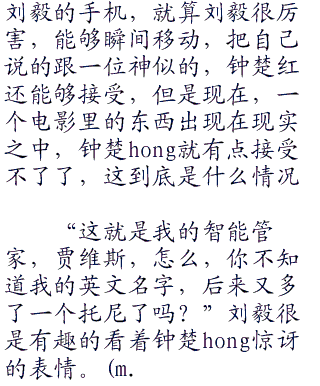 刘毅的手机，就算刘毅很厉
害，能够瞬间移动，把自己
说的跟一位神似的，钟楚红
还能够接受，但是现在，一
个电影里的东西出现在现实
之中，钟楚hong就有点接受
不了了，这到底是什么情况
“这就是我的智能管
家，贾维斯，怎么，你不知
道我的英文名字，后来又多
了一个托尼了吗？”刘毅很
是有趣的看着钟楚hong惊讶
的表情。(m.